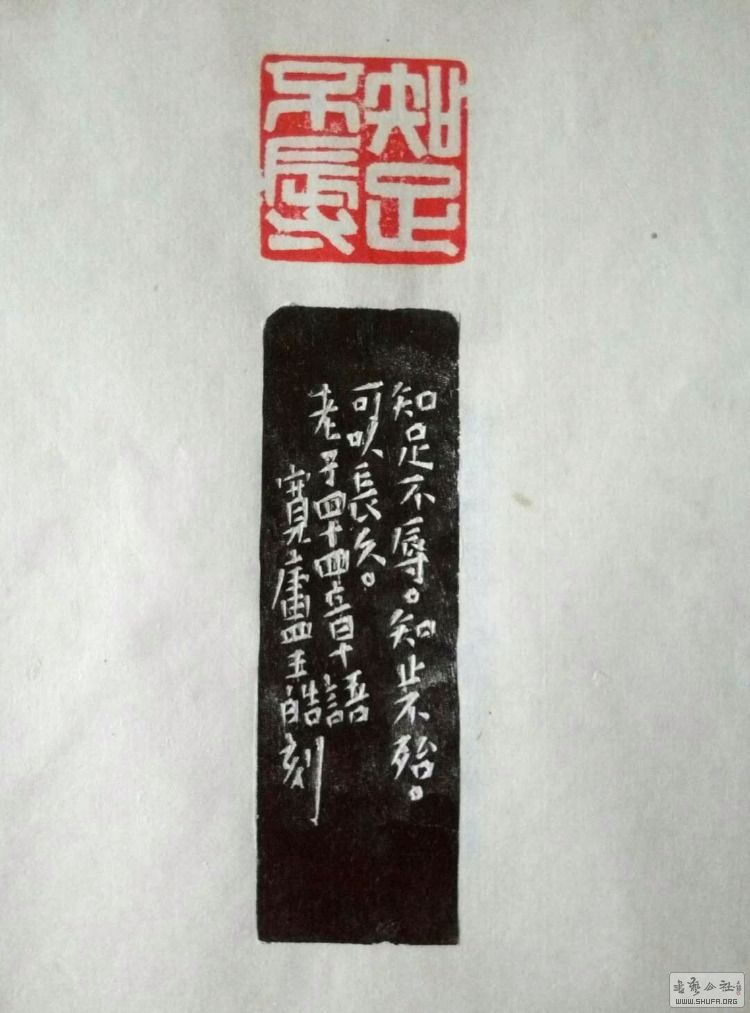 知足
不辱
知足不辱。知止不殆。
可以長久。
老子四十四章語
寬盧王皓刻
书艺公社
WWW.SHUFA.ORG